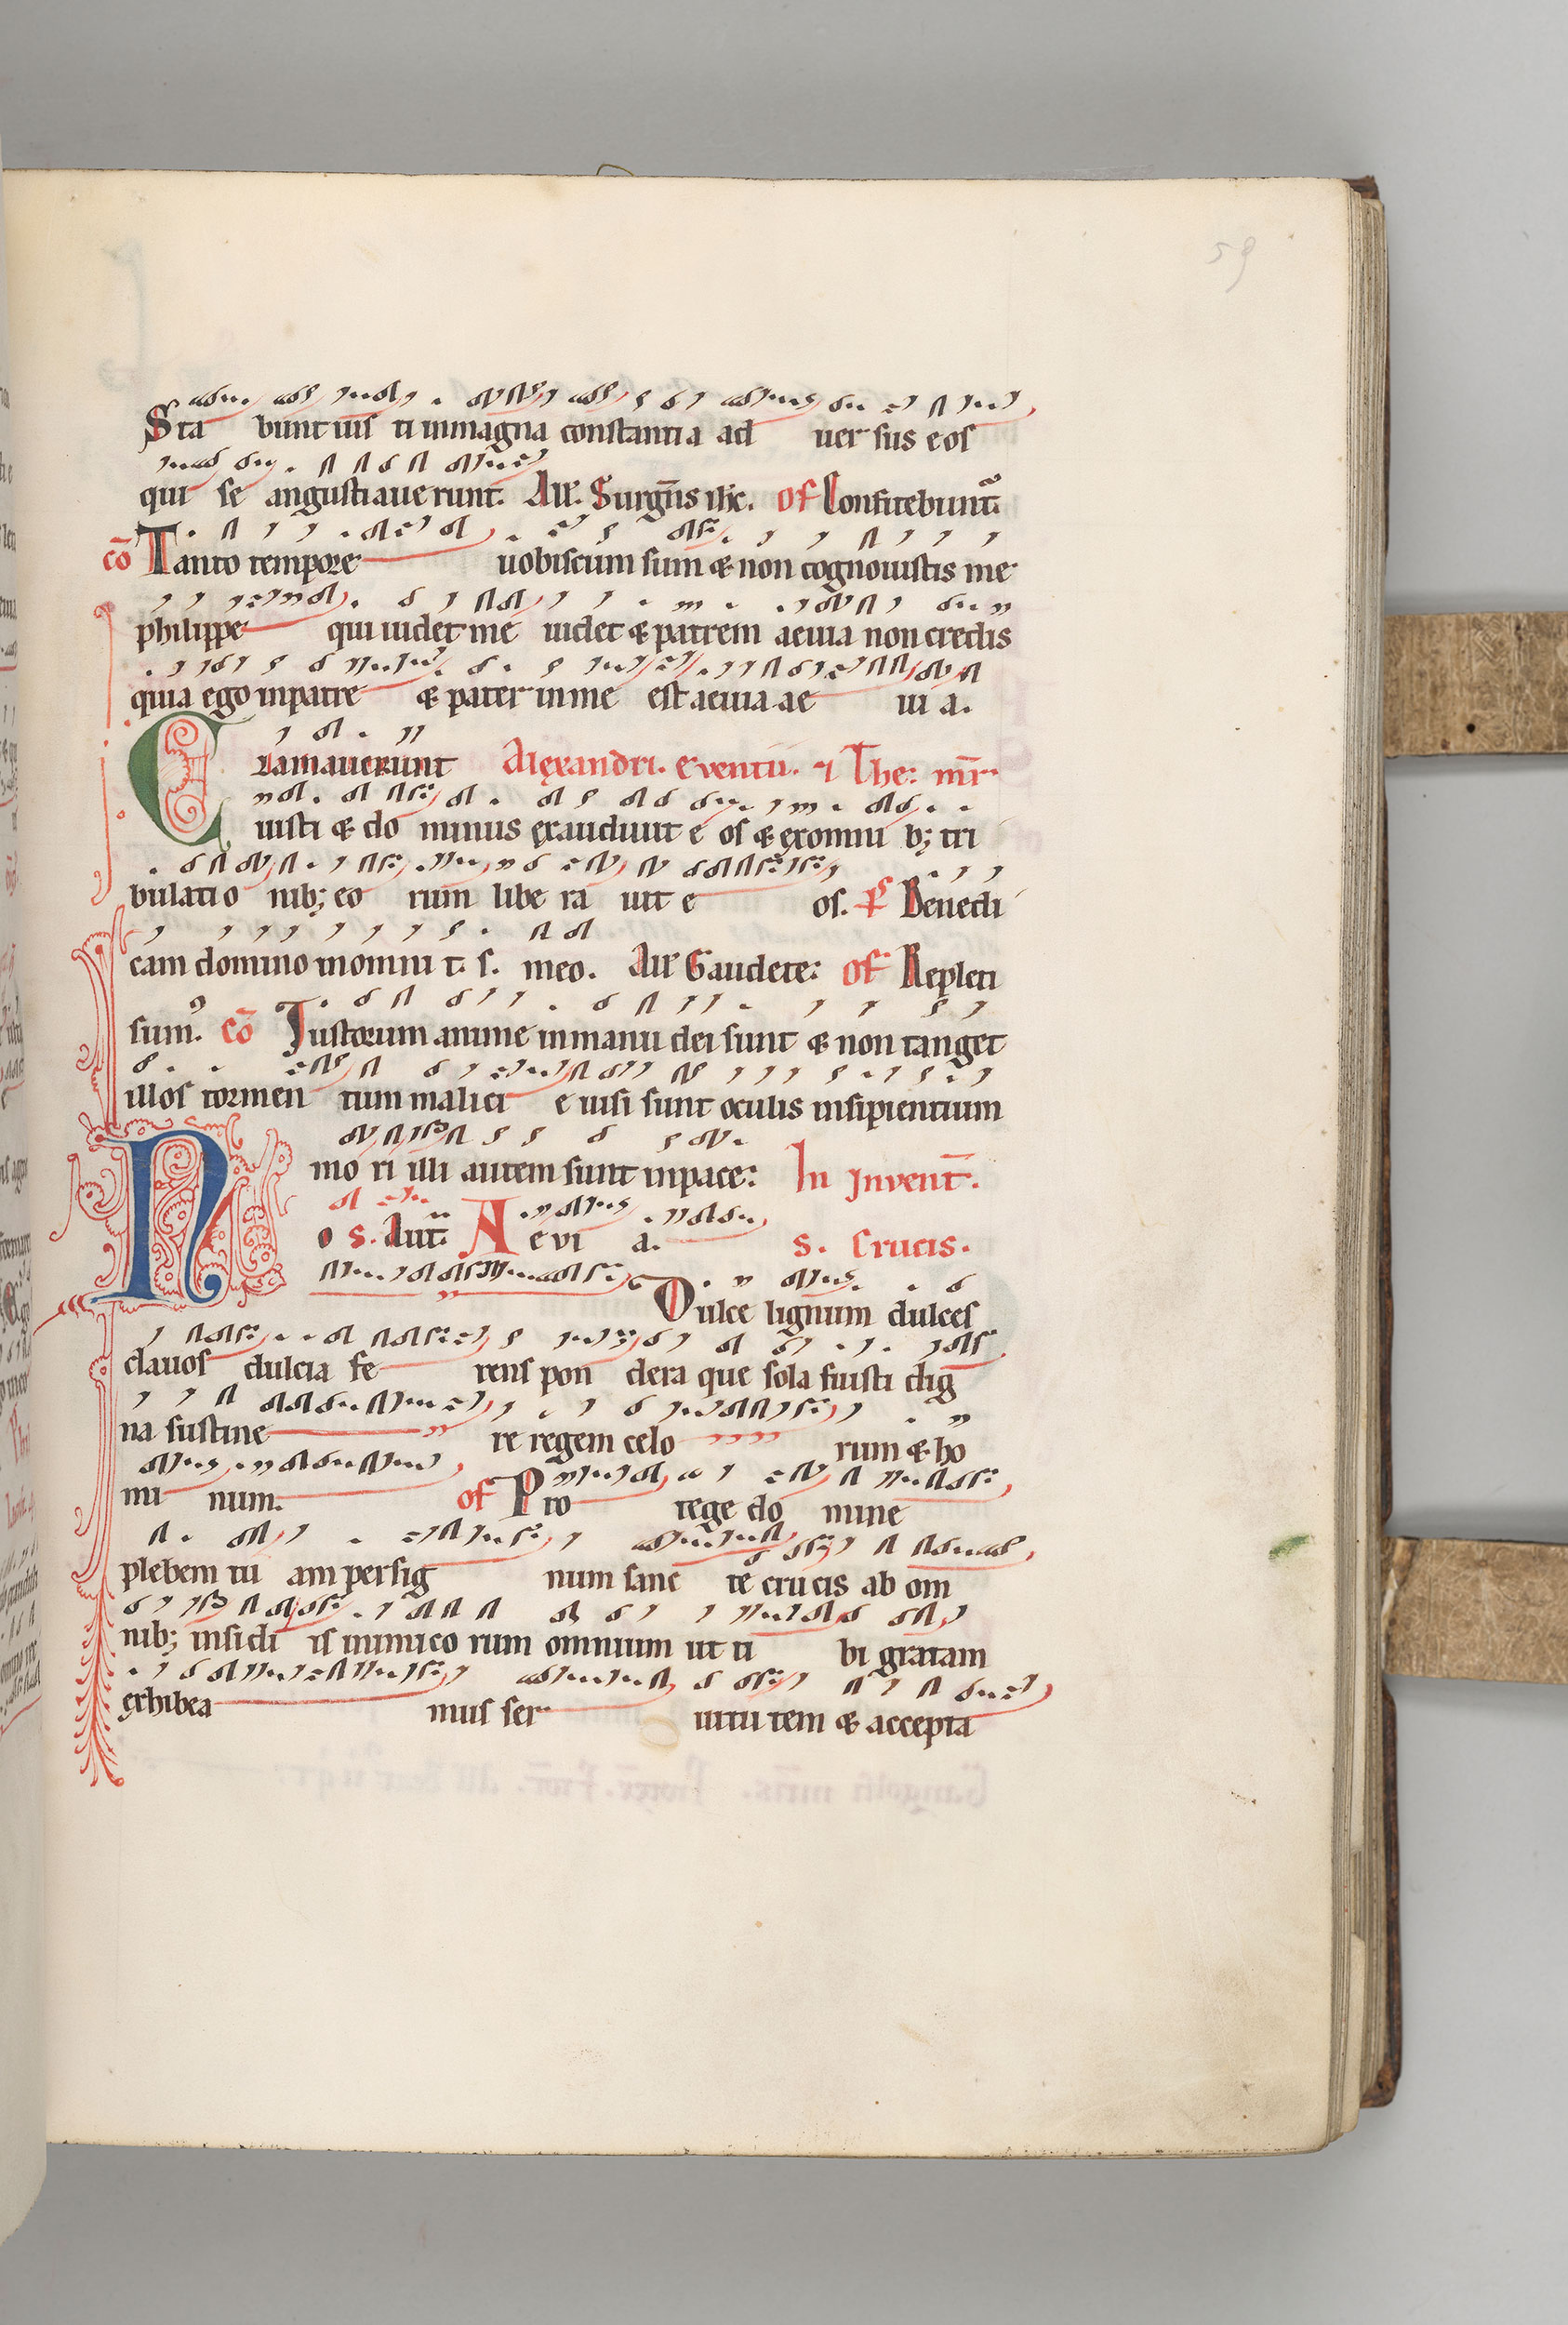 59
Sta bunt ius ti inmagna constantia ad uer sus eos
qui se angustiauerunt. All'. Surgēns ihc. of Confitebunt̄.
cō Tanto tempore uobiscum sum & non cognouistis me
philippe qui uidet me uidet & patrem aeuia non credis
quia ego inpatre & pater inme est aeuia ae ui a.
Clamauerunt Alexandri. Eventii. & The: mr̄.
iusti & do minus exaudiuit e os & exomni b; tri
bulatio nib; eo rum libe ra uit e os. ps Benedi
cam domino inomni t. s. meo. All' Gaudete: of Repleti
sum⁹. cō Iustorum anime inmanu dei sunt & non tanget
illos tormen tum malici e uisi sunt oculis insipientium
mo ri illi autem sunt inpace: In Invent̄.
No s. Aut̄ A e vi a. s. Crucis.
Dulce lignum dulces
clauos dulcia fe rens pon dera que sola fuisti dig
na sustine re regem celo rum & ho
mi num. of Pro tege do mine
plebem tu am per sig num sanc te crucis ab om
nib; insidi is inimico rum omnium ut ti bi gratam
exhibea mus ser uitu tem & accepta